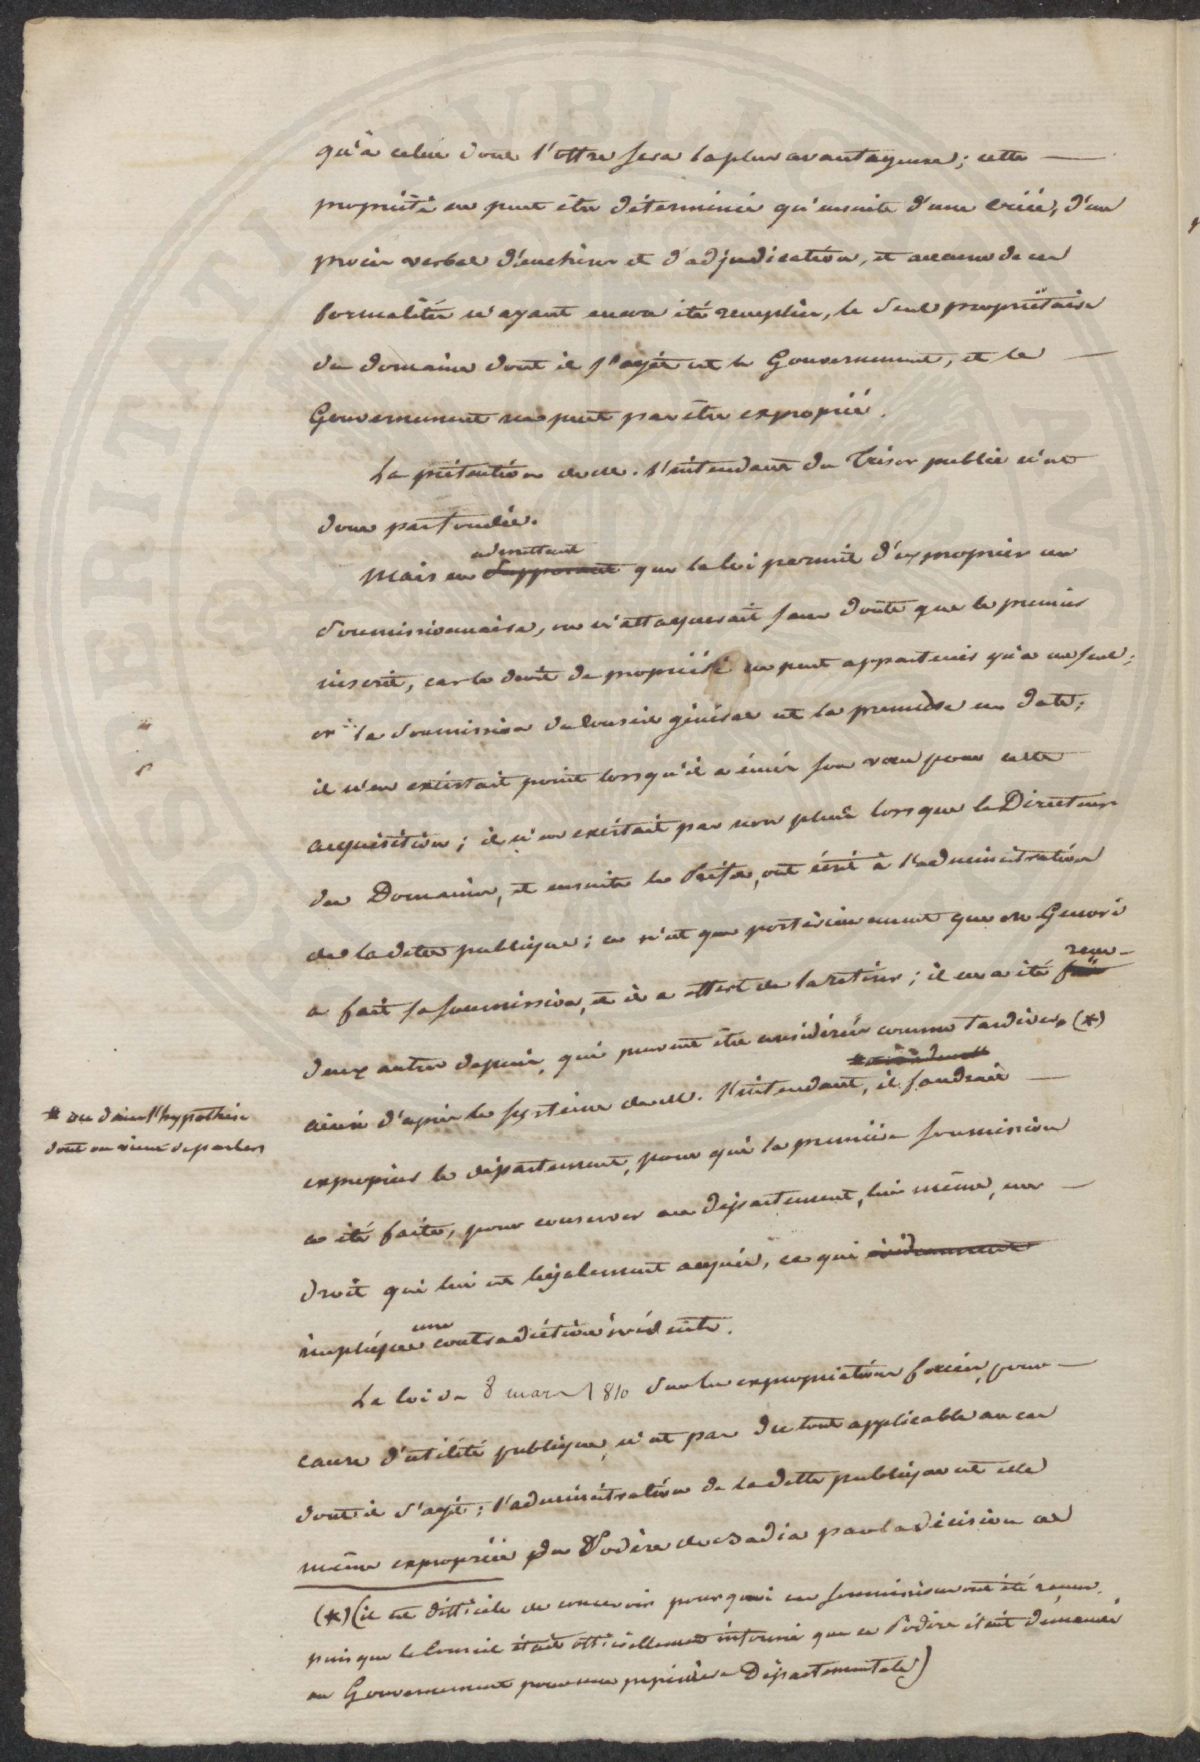 qu'à celui dont l'offre sera la plus avantageuse; cette
propriété ne peut être déterminée qu'ensuite d'une criée, d'un
procès verbal d'enchères et d'adjudication, et aucune de ces
formalités n'ayant encore été remplies, le seul propriétaire
du domaine dont il s'agit est le Gouvernement, et le
Gouvernement ne peut pas être exproprié.
La prétention de M. l'intendant du Trésor public n'est
donc pas fondée.
admettant
Mais en supposant que la loi permit d'exproprier un
soumissionnaire, on n'attaquerait sans doute que le premier
inscrit, car le droit de propriété ne peut appartenir qu'à un seul;
or la soumission du Conseil général est la première en date;
il n'en existait point lorsqu'il a émis son vœu pour cette
acquisition; il n'en existait pas non plus lorsque le Directeur
des Domaines, et ensuite le Préfet, ont écrit à l'administration
de la dette publique; ce n'est que postérieurement que M Genori
a fait sa soumission, et il a offert de la retirer; il en a été fait reçu
deux autres depuis, qui peuvent être considérées comme tardives. (*)
ainsi d'après le système de M. l'intendant, il faudrait
* ou dans l'hypothèse
dont on vient de parler
exproprier le département, pour qui la première soumission
a été faite, pour conserver au département, lui même, un
droit qui lui est légalement acquis, ce qui évidemment
implique une contradiction évidente.
La loi du 8 mars 1810 sur les expropriations forcées, pour
cause d'utilité publique, n'est pas du tout applicable au cas
dont il s'agit; l'administration de la dette publique est elle
même expropriée du Podère de Badia par la décision de
(*) (il est difficile de concevoir pourquoi ces soumissions ont été reçues,
puisque le Conseil était officiellement informé que ce Podère était demandé
au Gouvernement pour une pépinière Départementale)